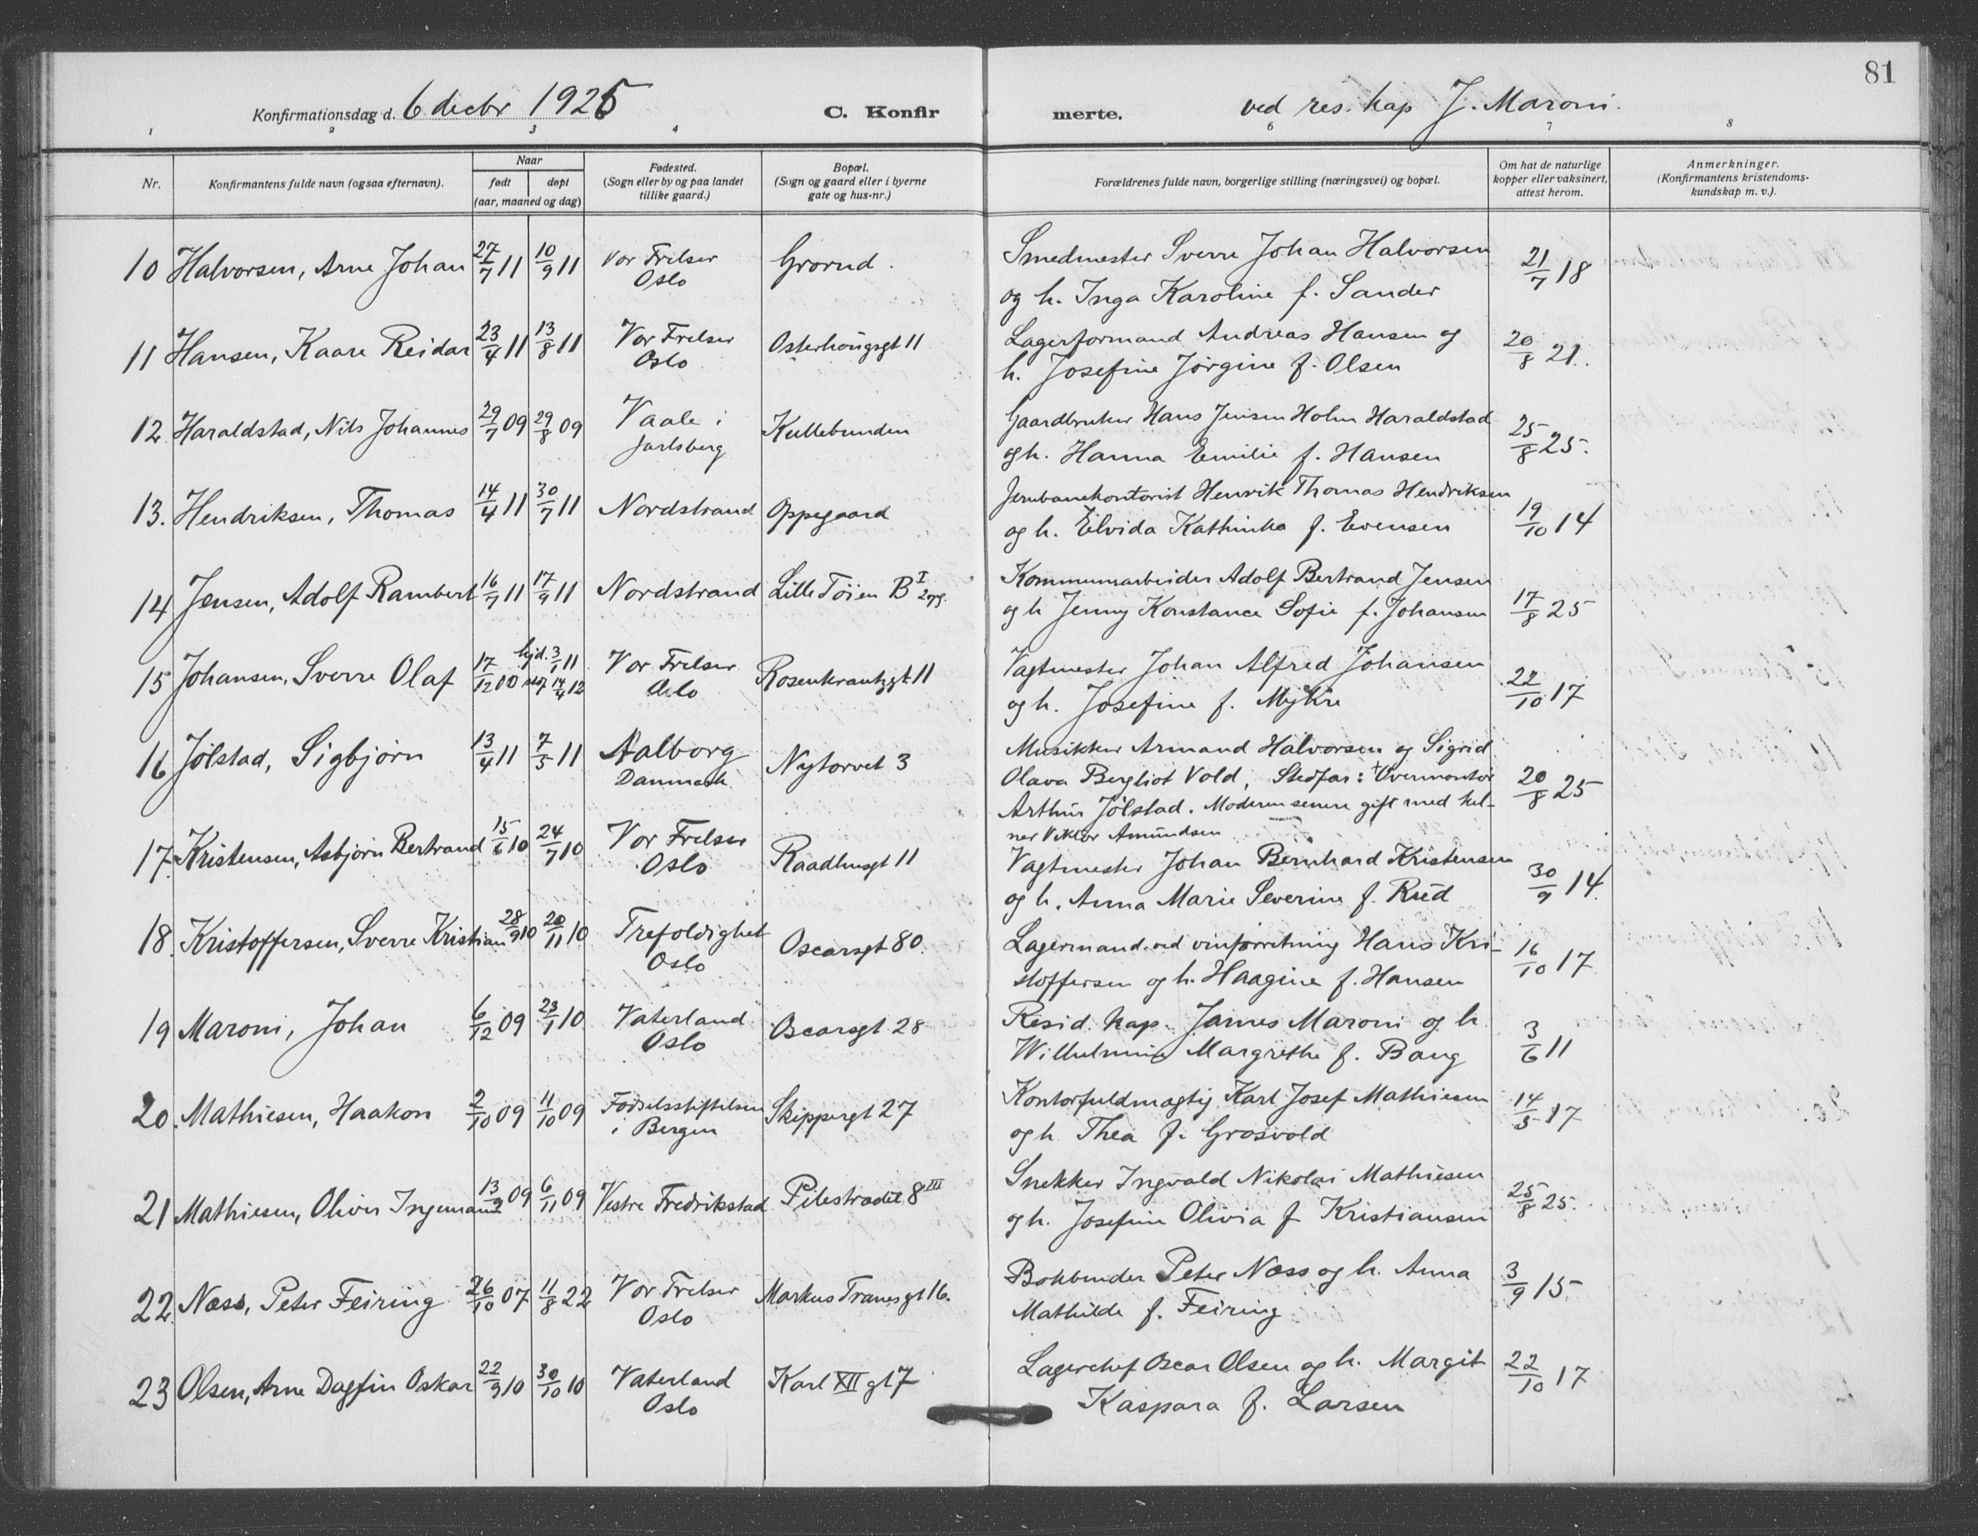 81
Konfirmationsdag d. 6 decbr 1925 C. Konfir merte. ved res. kap J. Maroni.
1 2 3 4 6 7 8
Nr. Konfirmantens fulde navn (ogsaa efternavn). Naar født døpt (aar, maaned og dag) Fødested. (Sogn eller by og paa landet tillike gaard.) Bopæl. (Sogn og gaard eller i byerne gate og hus-nr.) Forældrenes fulde navn, borgerlige stilling (næringsvei) og bopæl. Om hat de naturlige kopper eller vaksinert, attest herom. Anmerkninger. (Konfirmantens kristendoms-kundskap m. v.).
10 Halvorsen, Arne Johan 27/7 11 10/9 11 Vor Frelser Oslo Grorud. Smedmester Sverre Johan Halvorsen 21/7 18
og h. Inga Karoline f. Sander
11 Hansen, Kaare Reidar 23/4 11 13/8 11 Vor Frelser Oslo Osterhougsgt 11 Lagerformand Andreas Hansen og 20/8 21.
h. Josefine Jørgine f. Olsen
12. Haraldstad, Nils Johannes 29/7 09 29/8 09 Vaale i Jarlsberg Kullebunden Gaardbruker Hans Jensen Holm Haraldstad 25/8 25.
og h. Hanna Emilie f. Hansen
13. Hendriksen, Thomas 14/4 11 30/7 11 Nordstrand Oppegaard Jernbanekontorist Henrik Thomas Hendriksen 19/10 14
og h. Eilvida Kathinka f. Evensen
14 Jensen, Adolf Rambert 16/7 11 17/9 11 Nordstrand Lille Tøien B I 2 opg. Kommunearbeider Adolf Bertrand Jensen 17/8 25
og h Jenny Konstance Sofie f. Johansen
15 Johansen, Sverre Olaf 17/12 10 hjd. 3/1 11 14/4 12 Vor Frelser Oslo Rosenkrantzgt 11 Vagtmester Johan Alfred Johansen 22/10 17
og h. Josefine f. Myhre
16 Jølstad, Sigbjørn 13/4 11 7/5 11 Aalborg Danmark Nytorvet 3 Musikker Armand Halvorsen og Sigrid 20/8 25
Olava Bergliot Vold, Stedfar: Overmontør
Arthur Jølstad. Moderen senere gift med kel-
ner Viktor Amundsen
17. Kristensen, Asbjørn Bertrand 15/6 10 24/7 10 Vor Frelser Oslo Raadhusgt 11 Vagtmester Johan Bernhard Kristensen 30/9 14.
og h. Anna Marie Severine f. Rud
18. Kristoffersen, Sverre Kristian 28/9 10 20/11 10 Trefoldighet Oslo Oscarsgt 80. Lagermand ved vinforretning Hans Kri- 16/10 17
stoffersen og h. Haagine f. Hansen
19 Maroni, Johan 6/12 09 23/1 10 Vaterland Oslo Oscarsgt 28 Resid. kap. James Maroni og h. 3/6 11
Wilhelmine Margrethe f. Bang
20. Mathiesen, Haakon 2/10 09 11/10 09 Fødselsstiftelsen i Bergen Skippergt 27 Kontorfuldmægtig Karl Josef Mathiesen 14/5 17
og h. Thea f. Grosvold
21 Mathiesen, Oliver Ingemann 13/9 09 6/11 09 Vestre Fredrikstad Pilestrædet 8 III Snekker Ingvald Nikolai Mathiesen 25/8 25.
og h. Josefine Olivia f Kristiansen
22. Næss, Peter Feiring 26/10 07 11/8 22 Vor Frelser Oslo Markus Tranesgt 16. Bokbinder Peter Næss og h. Anna 3/9 15
Mathilde f. Feiring
23 Olsen, Arne Dagfin Oskar 22/9 10 30/10 10 Vaterland Oslo Karl XII gt 7 Lagerchef Oscar Olsen og h. Margit 22/10 17
Kaspara f. Larsen